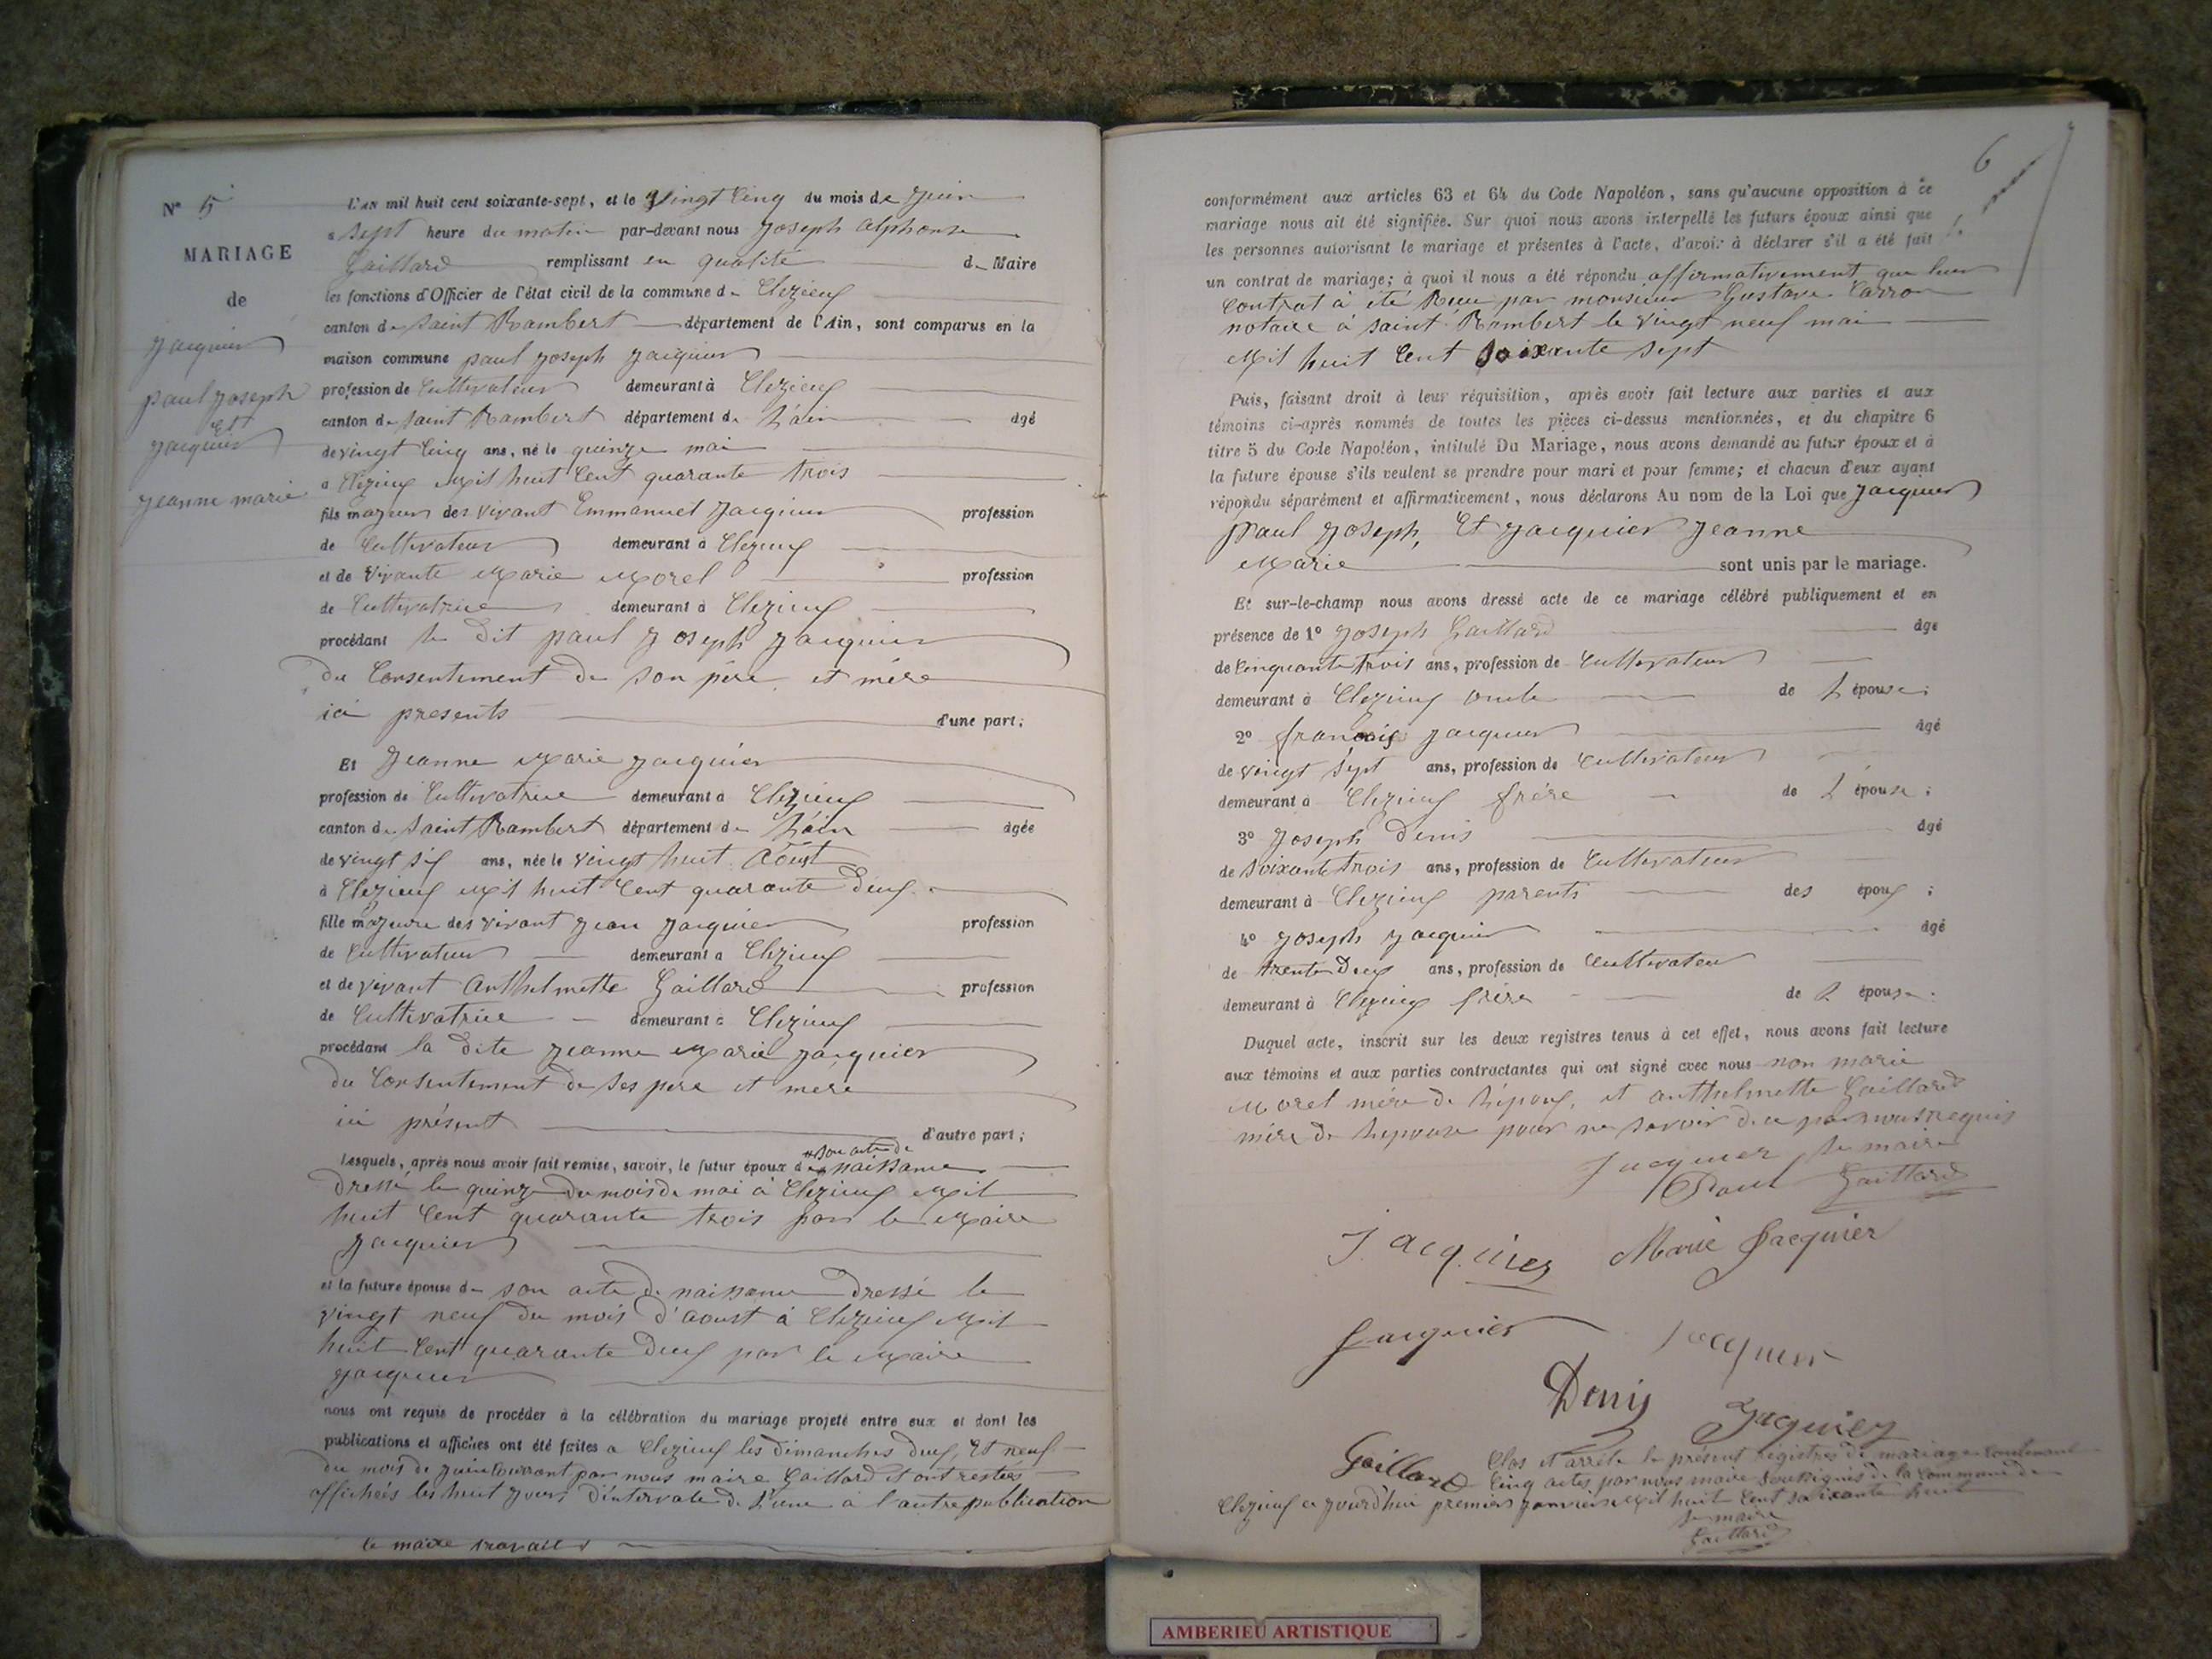 N° 5
MARIAGE
de
Jacquier
paul joseph
Et
jacquier
jeanne marie
L'AN mil huit cent soixante-sept, et le Vingt Cinq du mois de juin
a sept heure du matin par-devant nous Joseph alphonse
Gaillard remplissant en qualité de Maire
les fonctions d'Officier de l'état civil de la commune de Clezieux
canton de saint Rambert département de l'Ain, sont comparus en la
maison commune paul joseph jacquier
profession de Cultivateur demeurant à Clezieux
canton de saint Rambert département de L'ain âgé
de vingt Cinq ans, né le quinze mai
a Clezieux Mil huit Cent quarante trois
fils majeur des vivant Emmanuel Jacquier profession
de Cultivateur demeurant à Clezieux
et de Vivante Marie Morel profession
de Cultivatrice demeurant à Clezieux
procédant le dit paul joseph jacquier
du Consentement de son père et mère
ici presents d'une part;
Et Jeanne Marie jacquier
profession de Cultivatrice demeurant à Clezieux
canton de saint Rambert département de L'ain âgée
de vingt six ans, née le vingt huit Août
à Clezieux Mil huit Cent quarante deux
fille majeure des vivant jean jacquier profession
de Cultivateur demeurant a Clezieux
et de vivant Anthelmette Gaillard profession
de Cultivatrice demeurant à Clezieux
procédant la dite jeanne Marie jacquier
du Consentement de ses père et mère
ici présent d'autre part;
Lesquels, après nous avoir fait remise, savoir, le futur époux de son acte de naissance
Dressé le quinze du mois de mai à Clezieux Mil
huit Cent quarante trois par le Maire
Jacquier
et la future épouse de son acte de naissance dressé le
vingt neuf du mois d'aoust à Clezieux Mil
huit Cent quarante deux par le Maire
jacquier
nous ont requis de procéder à la célébration du mariage projeté entre eux et dont les
publications et affiches ont été faites a Clezieux les dimanches deux Et neuf
du mois de juin Courrant par nous maire Gaillard et ont restés
affichés les huit jours d'intervale de L'une à l'autre publication
le maire
6
conformément aux articles 63 et 64 du Code Napoléon, sans qu'aucune opposition à ce
mariage nous ait été signifiée. Sur quoi nous avons interpellé les futurs époux ainsi que
les personnes autorisant le mariage et présentes à l'acte, d'avoir à déclarer s'il a été fait
un contrat de mariage; à quoi il nous a été répondu affirmativement que leur
Contrat à été Reçu par monsieur Gustave Carron
notaire à saint Rambert le vingt neuf mai
Mil huit Cent soixante sept
Puis, faisant droit à leur réquisition, après avoir fait lecture aux parties et aux
témoins ci-après nommés de toutes les pièces ci-dessus mentionnées, et du chapitre 6
titre 5 du Code Napoléon, intitulé Du Mariage, nous avons demandé au futur époux et à
la future épouse s'ils veulent se prendre pour mari et pour femme; et chacun d'eux ayant
répondu séparément et affirmativement, nous déclarons Au nom de la Loi que Jacquier
paul joseph, Et jacquier jeanne
Marie sont unis par le mariage.
Et sur-le-champ nous avons dressé acte de ce mariage célébré publiquement et en
présence de 1° Joseph Gaillard âge
de Cinquante trois ans, profession de Cultivateur
demeurant à Clezieux oncle de L'épouse;
2° françois jacquier âgé
de vingt sept ans, profession de Cultivateur
demeurant à Clezieux frère de L'épouse;
3° Joseph Denis âgé
de soixante trois ans, profession de Cultivateur
demeurant à Clezieux parents des époux;
4° joseph jacquier âgé
de trente deux ans, profession de Cultivateur
demeurant à Clezieux frère de L'épouse.
Duquel acte, inscrit sur les deux registres tenus à cet effet, nous avons fait lecture
aux témoins et aux parties contractantes qui ont signé avec nous non marie
Morel mère de L'époux, et anthelmette Gaillard
mère de Lepouse pour ne savoir de ce par nous requis
Jacquier le maire
Paul Gaillard
Jacquier Marie Jacquier
Jacquier Jacquier
Denis Jacquier
Gaillard Clos et arrêté le présent Registres de mariage Contenant
Cinq actes par nous maire soussignés de la Commune de
Clezieux ce jourd'hui premier janvier Mil huit Cent soixante huit
Le maire
Gaillard
AMBERIEU ARTISTIQUE